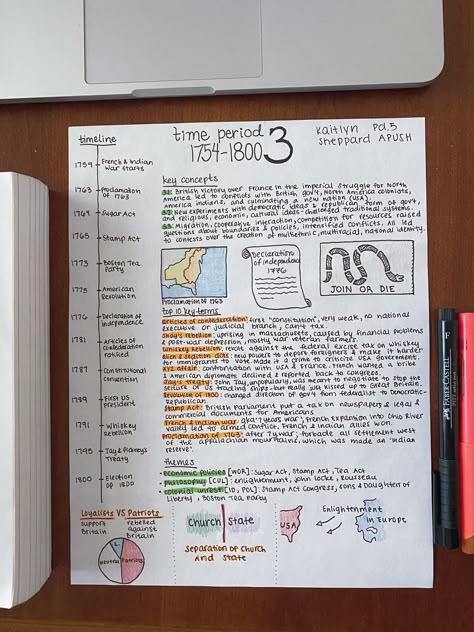 timeline
time period 3
1754-1800
Kaitlyn Pd.5
Sheppard APUSH
1754 French & Indian war starts
1763 Proclamation of 1763
1764 Sugar Act
1765 Stamp Act
1773 Boston Tea Party
1775 American Revolution
1776 Declaration of Independence
1781 Articles of confederation ratified
1787 Constitutional convention
1789 First US President
1791 Whiskey Rebellion
1795 Jay & Pinckney's Treaty
1800 Election of 1800
key concepts
3.1: British victory over France in the imperial struggle for North
America led to conflicts with British gov't, North America colonists,
America Indians, and culminating a new nation (USA).
3.2: New experiments with democratic ideas & republican form of gov't,
and religious, economic, cultural ideas challenged traditional systems.
3.3: Migration, cooperative interaction, competition for resources raised
questions about boundaries & policies, intensified conflicts. All led
to contests over the creation of multiethnic, multiracial, national identity.
Proclamation of 1763
Declaration
of independence
1776
JOIN OR DIE
top 10 key terms
Articles of confederation: first "constitution", very weak, no national
executive or judicial branch, can't tax.
Shay's rebellion: uprising in massachusetts, caused by financial problems
& post-war depression, mostly war veteran farmers.
Whiskey Rebellion: revolt against the federal excise tax on whiskey
Alien & sedition acts: new powers to deport foreigners & make it harder
for immigrants to vote. Made it a crime to criticize USA government.
XYZ affair: confrontation with USA & France. French wanted a bribe
& American diplomats declined & reported back to congress.
Jay's treaty: John Jay, unpopularly, was meant to negotiate to stop the
seizure of US trading ships, but really just kissed up to Great Britain.
Revolution of 1800: changed direction from federalist to Democratic-
Republican.
Stamp Act: British parliament put a tax on newspapers & legal &
commercial documents for Americans
French & Indian war: aka '7 years' war', French expansion into Ohio River
valley led to armed conflict. French & Indian allies won.
Proclamation of 1763: after 7 y war; forbade all settlement west
of the appalachian mountains, which was made an 'indian
reserve'.
themes
• economic policies [WOR]: Sugar Act, Stamp Act, Tea Act
• philosophy [CUL]: enlightment, John Locke, Rousseau
• colonial unrest [ID, POL]: Stamp Act Congress, sons & Daughter of
Liberty, Boston Tea party
Loyalists VS Patriots
support Britain
rebelled against Britain
Neutral
Patriots
Church State
separation of church
and state
USA
Enlightenment
in Europe
FABER-CASTELL